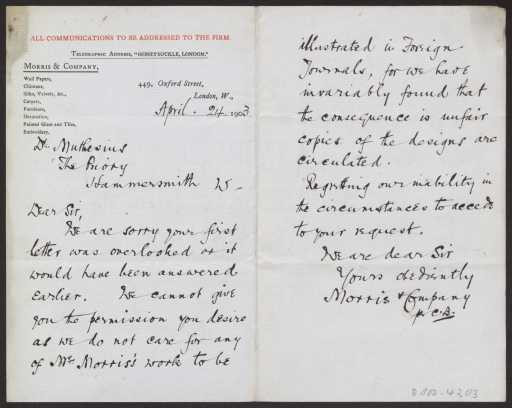 ALL COMMUNICATIONS TO BE ADDRESSED TO THE FIRM.
TELEGRAPHIC ADDRESS, "HONEYSUCKLE, LONDON."
MORRIS & COMPANY,
Wall Papers,
Chintzes,
Silks, Velvets, &c.,
Carpets,
Furniture,
Decoration,
Painted Glass and Tiles,
Embroidery.
449, Oxford Street,
London, W.,
April. 24. 1903
Dr. Muthesius
The Priory
Hammersmith W-
Dear Sir,
We are sorry your first
letter was overlooked or it
would have been answered
earlier. We cannot give
you the permission you desire
as we do not care for any
of Mr. Morris's work to be
illustrated in Foreign
Journals, for we have
invariably found that
the consequence is unfair
copies of the designs are
circulated.
Regretting our inability in
the circumstances to accede
to your request.
We are dear Sir
Yours obediently
Morris & Company